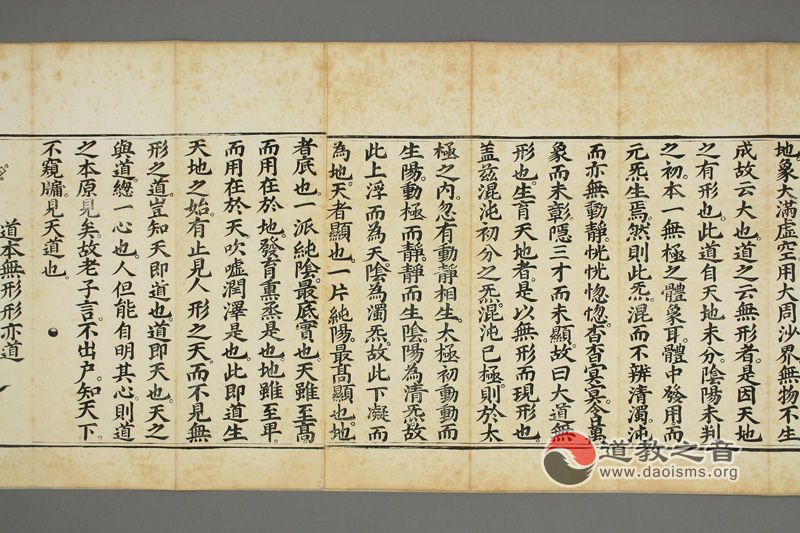 地象大滿虛空用大周沙界無物不生
成故云大也道之云無形者是因天地
之有形也此道自天地未分陰陽未判
之初本一無極之體象耳體中發用而
元炁生焉然則此炁混而不辨清濁沌
而亦無動靜恍恍惚惚杳杳冥冥含萬
象而未彰隱三才而未顯故曰大道無
形也生育天地者是以無形而現形也
蓋茲混沌初分之炁混沌已極則於太
極之內忽有動靜相生太極初動動而
生陽動極而靜靜而生陰陽為清炁故
此上浮而為天陰為濁炁故此下凝而
為地天者顯也一片純陽最髙顯也地
者底也一派純陰最底實也天雖至高
而用在於地發育熏蒸是也地雖至卑
而用在於天吹噓潤澤是也此即道生
天地之始有止見人形之天而不見無
形之道豈知天即道也道即天也天之
與道總一心也人但能自明其心則道
之本原見矣故老子言不出戶知天下
不窺牖見天道也
道本無形形亦道
道教之音
www.daoisms.org